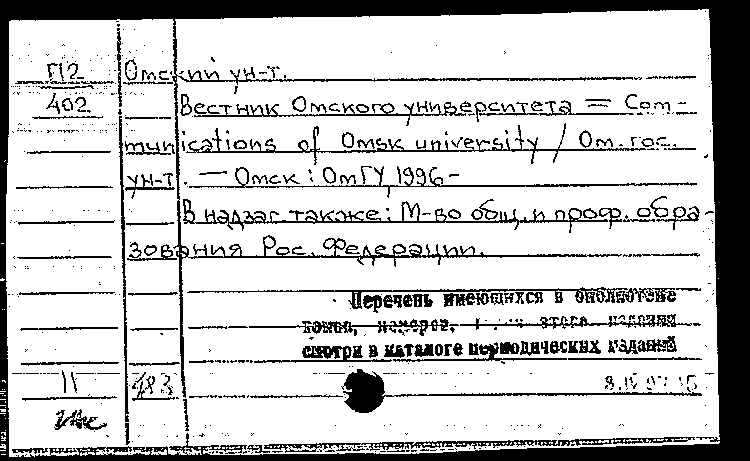 П2 Омский ун-т.
402 Вестник Омского университета = Com-
munications of Omsk university / Ом. гос.
ун-т. — Омск : ОмГУ, 1996-
В надзаг. также: М-во общ. и проф. обра-
зования Рос. Федерации.
Перечень имеющихся в библиотеке
томов, номеров, этого издания
смотри в каталоге периодических изданий
11 483